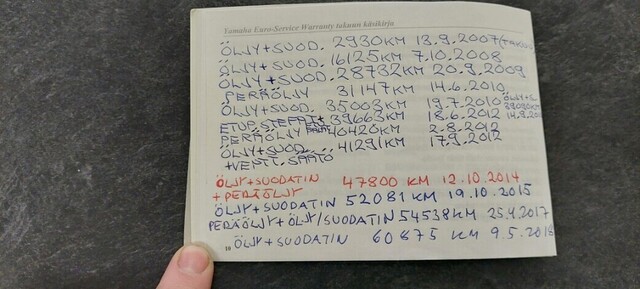 Yamaha Euro-Service Warranty takuun käsikirja
ÖLJY+SUOD. 2930KM 13.9.2007
ÖLJY+SUOD. 16125 KM 7.10.2008
ÖLJY+SUOD. 28732KM 20.9.2009
PERÄÖLJY 31147 KM 14.6.2010
ÖLJY+SUOD. 35003 KM 19.7.2010
39663KM 18.6.2012
PERÄÖLJY 40420KM 2.8.2012
ÖLJY+SUOD 41291KM 17.9.2012
+VENT. SÄÄTÖ
ÖLJY+SUODATIN 47800 KM 12.10.2014
+ PERÄÖLJY
ÖLJY+SUODATIN 52081 KM 19.10.2015
PERÄÖLJY+ÖLJY/SUODATIN 54538KM 25.4.2017
10 ÖLJY+SUODATIN 60875 KM 9.5.2018